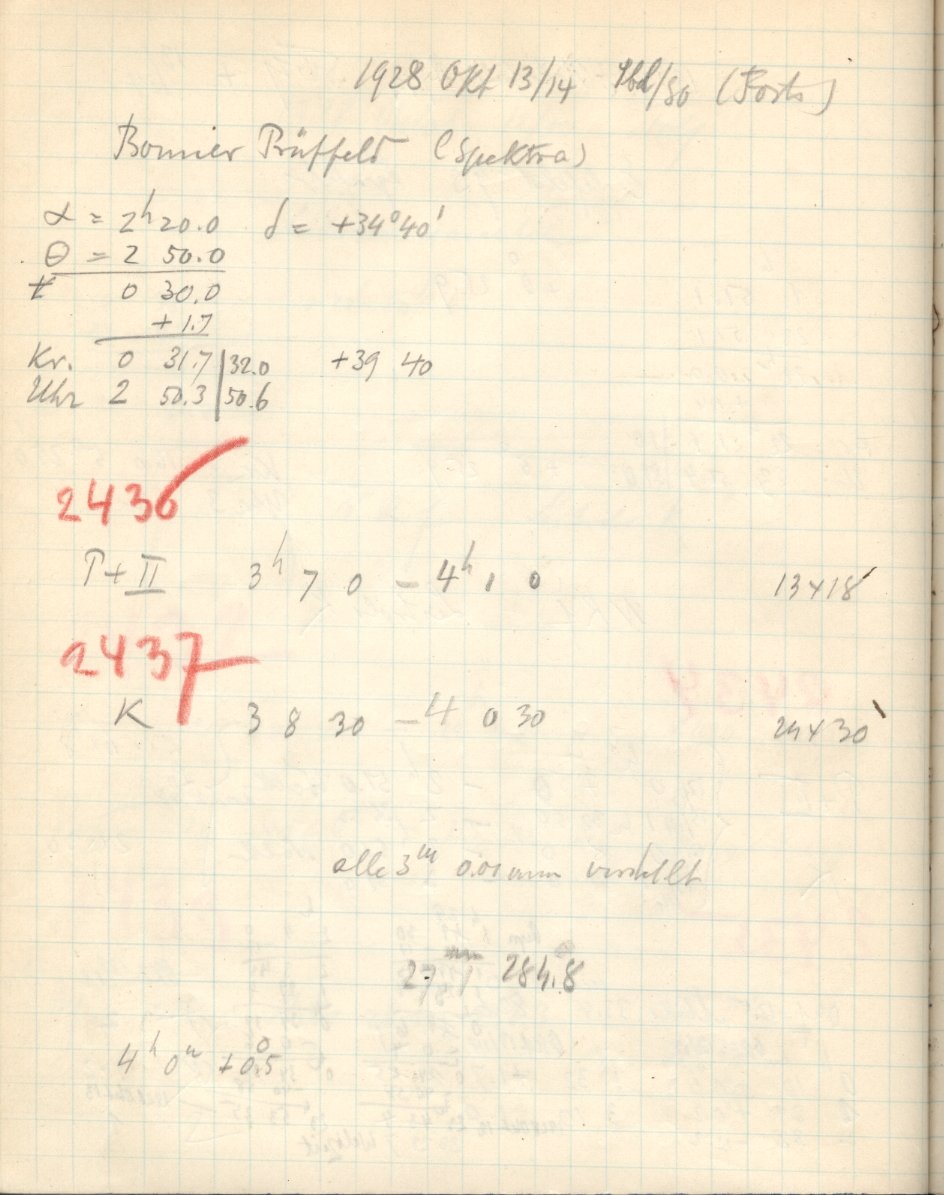 1928 Okt 13/14 (Forts)
Bonner Prüffeld (Spektra)
α = 2ʰ20.0 δ = +34°40'
θ = 2 50.0
t 0 30.0
+1.7
Kr. 0 31.7 | 32.0 +39 40
Uhr 2 50.3 | 50.6
2436
T+II 3ʰ 7 0 – 4ʰ 1 0 13×18
2437
K 3 8 30 – 4 0 30 24×30
alle 3ᵐ 0.01 mm verstellt
284.8
4ʰ 0ᵐ +0°.5